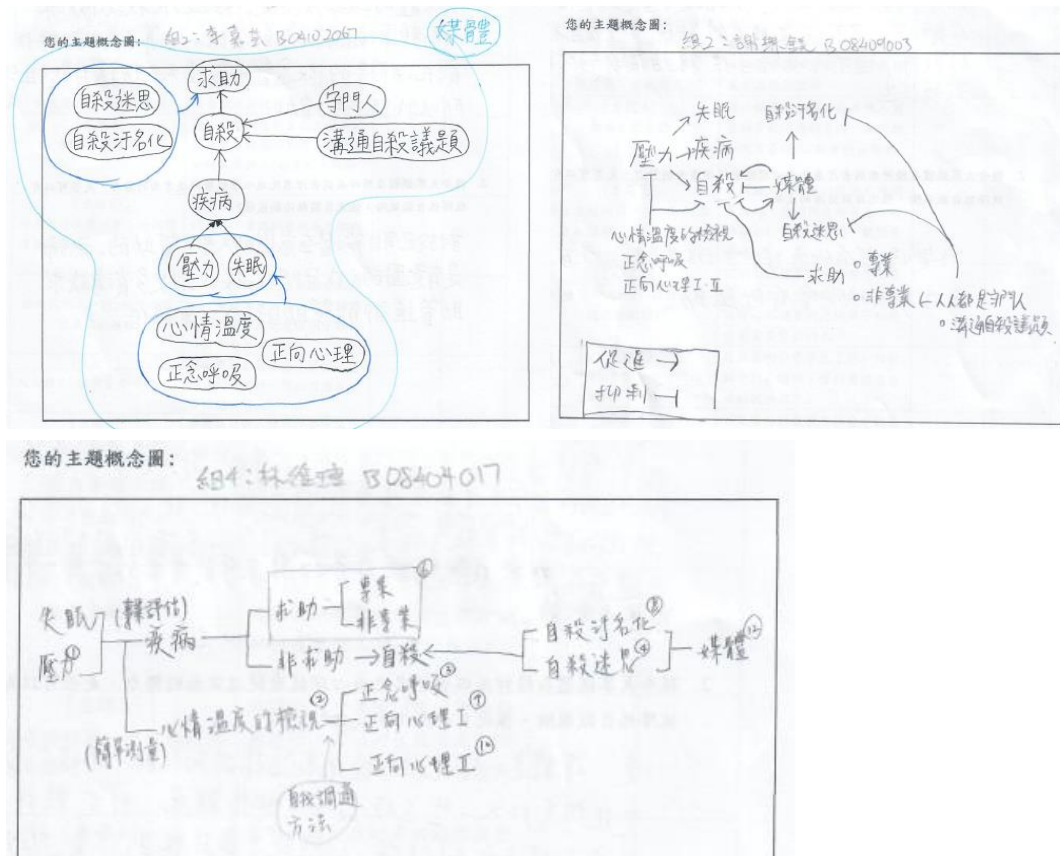 媒體
您的主題概念圖:
組2: B04102067
求助
自殺迷思
自殺汙名化
自殺
守門人
溝通自殺議題
疾病
壓力
失眠
心情溫度
正向心理
正念呼吸
您的主題概念圖:
組2: B08409003
失眠 自殺汙名化
壓力 疾病
自殺 媒體
心情溫度的檢視 自殺迷思
正念呼吸 求助 專業
正向心理 I、II 非專業 人人都是守門人
溝通自殺議題
促進
抑制
您的主題概念圖:
組4: 林 B08404017
失眠
壓力 ①
疾病
求助
專業
非專業
⑥
非求助 自殺
自殺汙名化 ⑧
自殺迷思 ④
媒體
心情溫度的檢視 ②
正念呼吸 ③
正向心理 I
正向心理 II ⑩
(簡單測量)
自我調適
方法